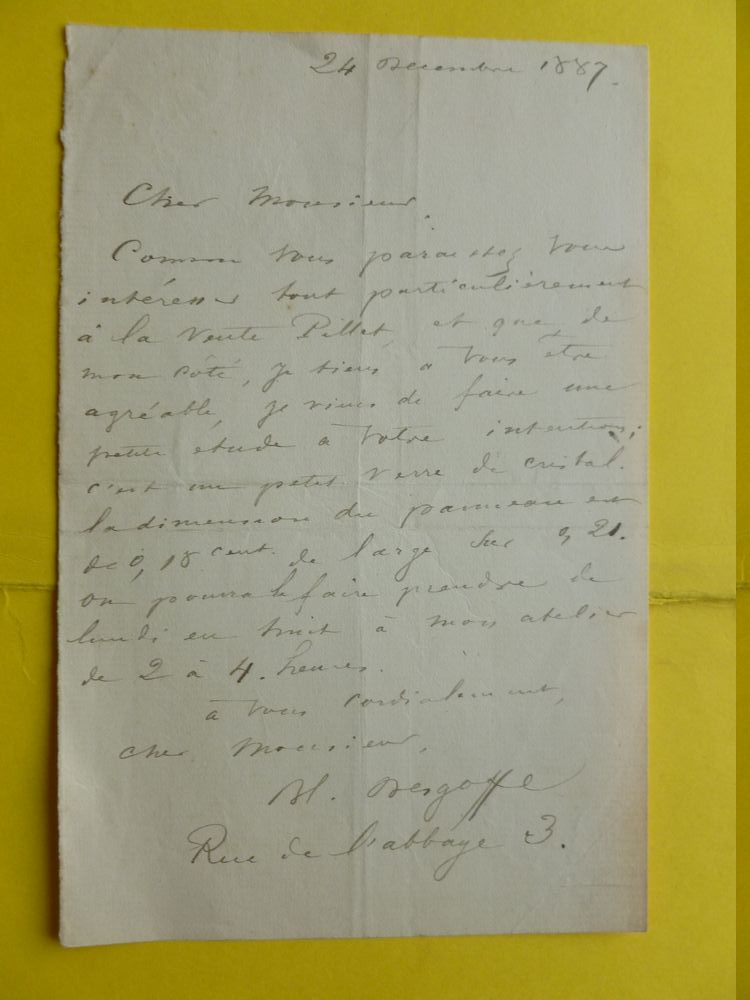 24 Decembre 1887.
Cher Monsieur,
Comme vous paraissez vous
intéresser tout particulièrement
à la vente Pillet, et que de
mon côté, je tiens a vous être
agréable, je viens de faire une
petite etude a votre intention;
c'est un petit verre de cristal.
la dimension du panneau est
de 0,18 cent. de large sur 0,21.
on pourra le faire prendre de
lundi en huit à mon atelier
de 2 à 4. heures.
à vous cordialement,
cher Monsieur,
Bl. Desgoffe
Rue de l'abbaye 3.